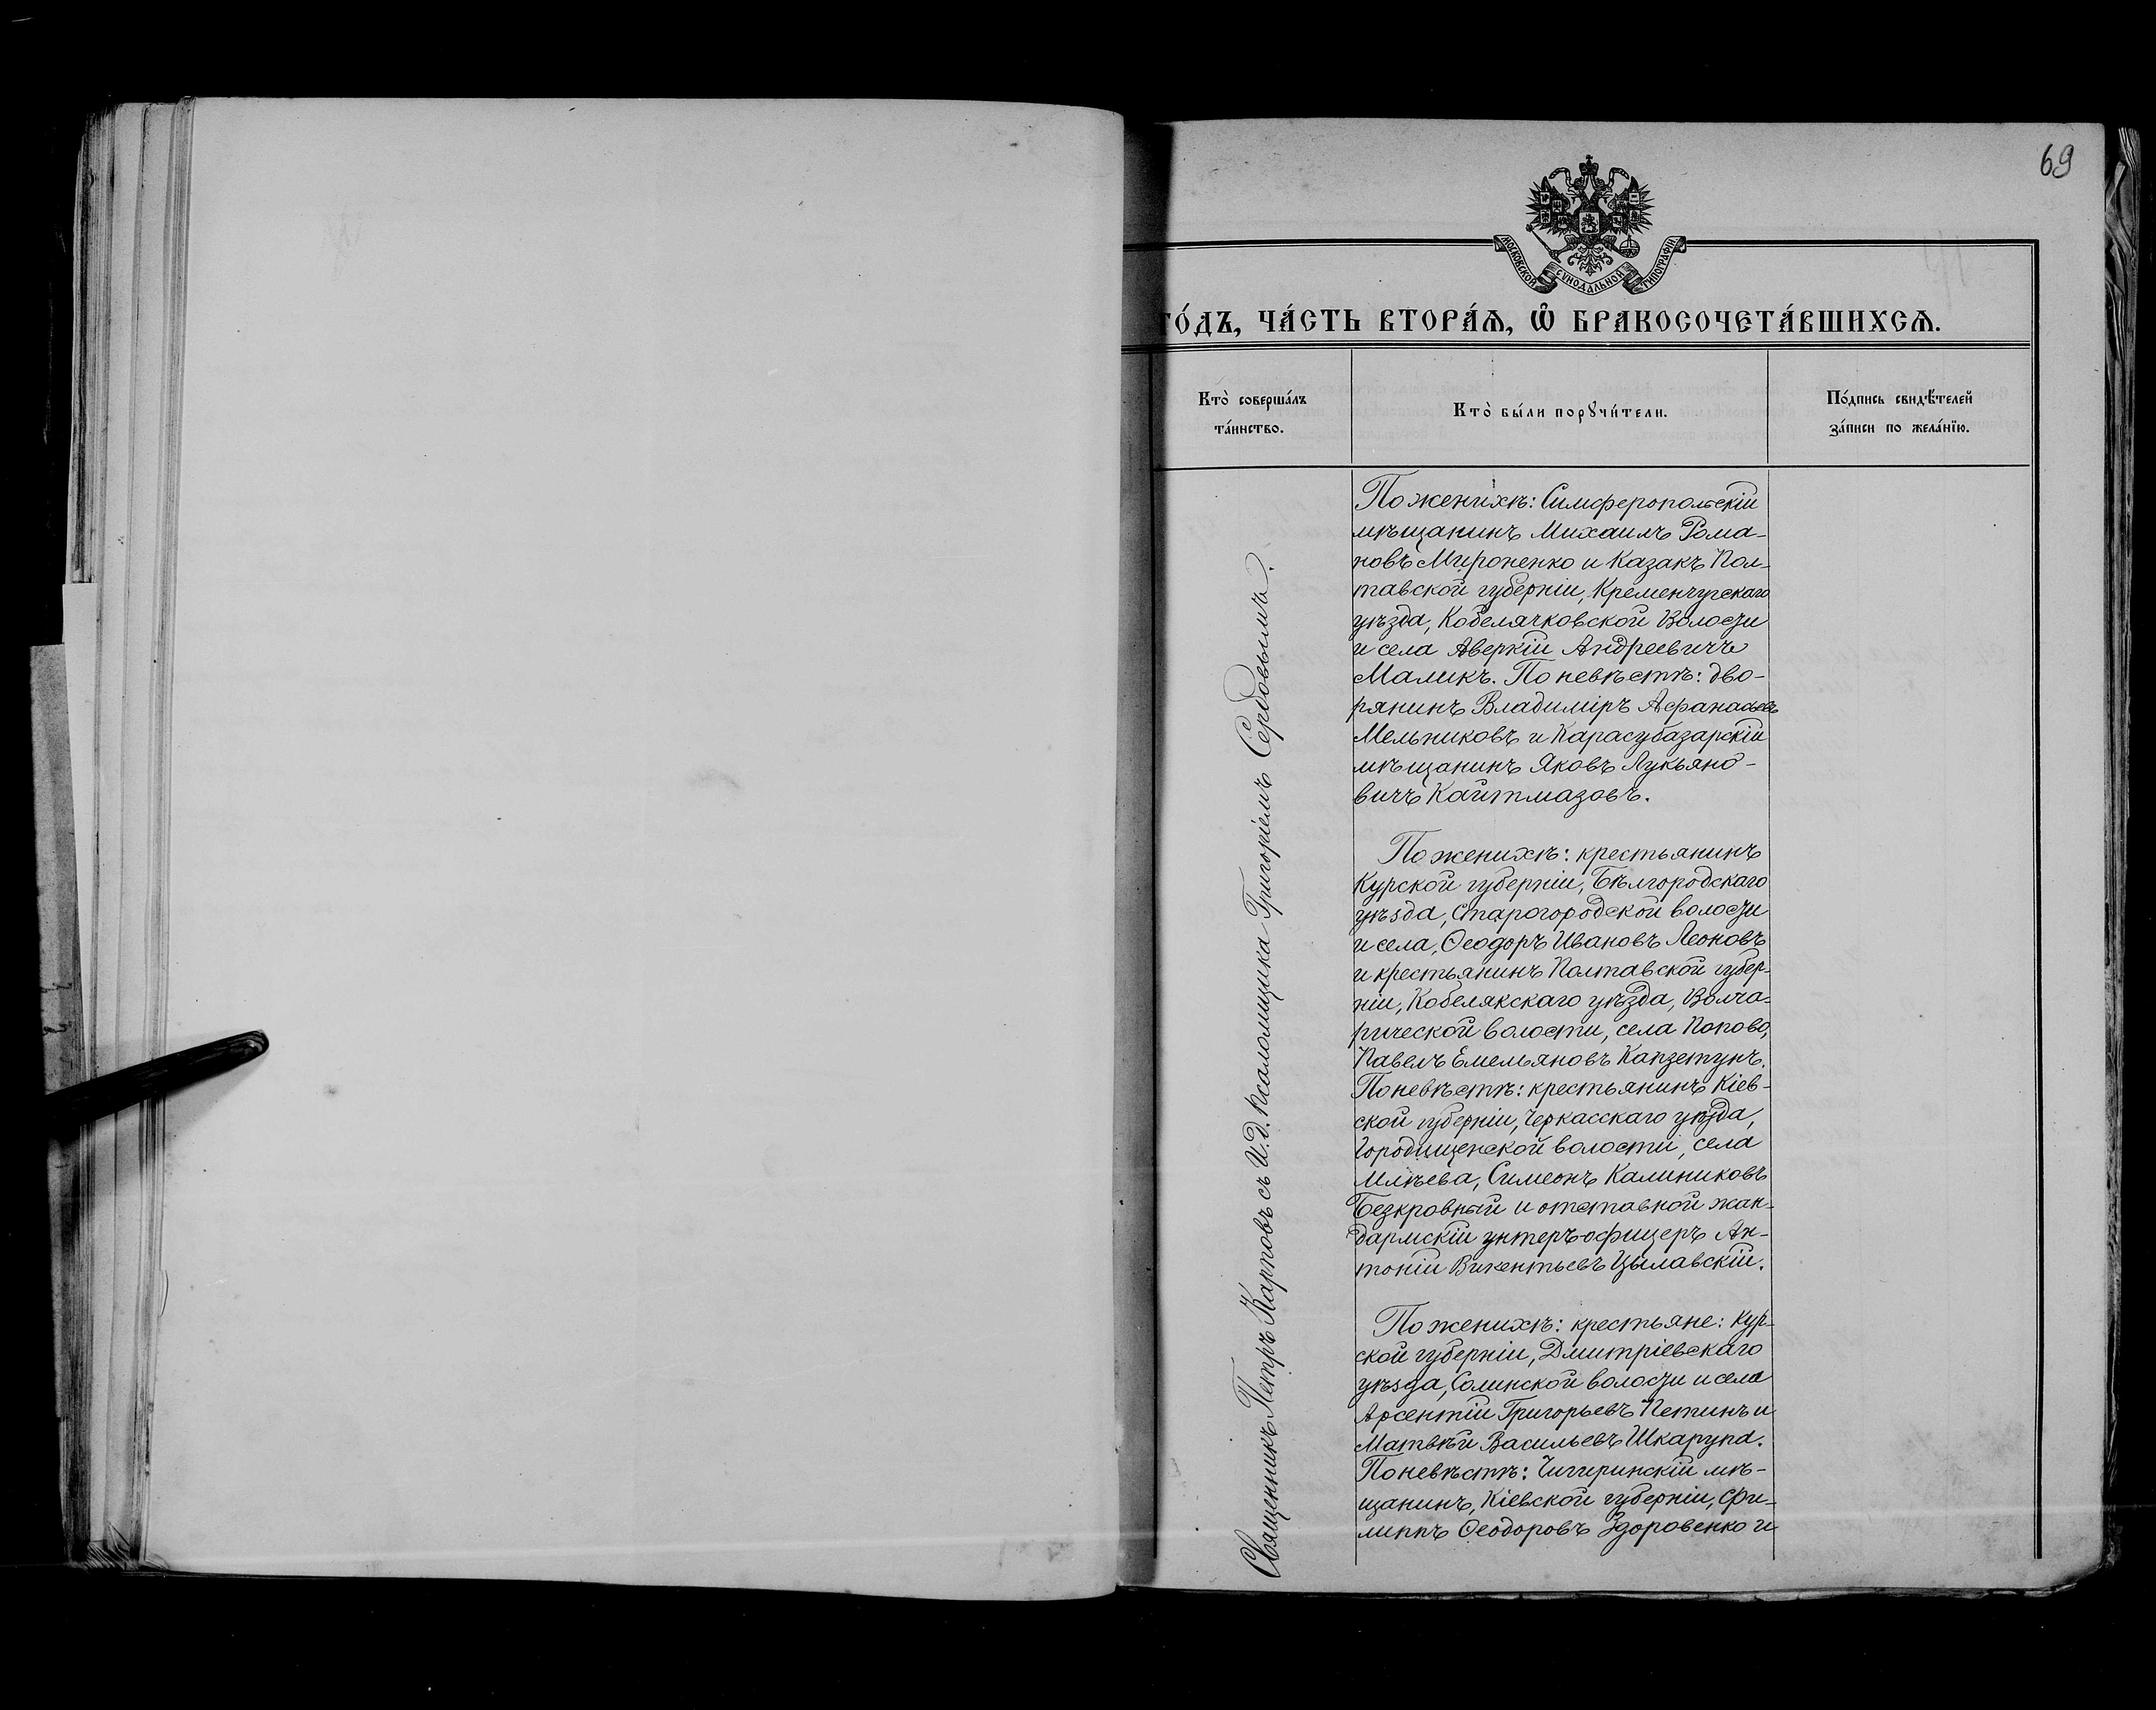 69
МОСКОВСКОЙ СѴНОДАЛЬНОЙ ТИПОГРАФІИ
го́дъ, ча́сть втора́ѧ, ѽ бракосочета́вшихсѧ.
Кто̀ соверша́лъ
та́инство.
Кто̀ бы́ли порꙋчи́тели.
По́дпись свидѣ́телей
за́писи по жела́нїю.
Священникъ Петръ Карповъ съ И. Д. Псаломщика Григоріемъ Сербовымъ.
По женихѣ: Симферопольскій
мѣщанинъ Михаилъ Рома-
новъ Мироненко и Казакъ Пол-
тавской губерніи, Кременчугскаго
уѣзда, Кобелячковской Волости
и села Аверкій Андреевичъ
Маликъ. По невѣстѣ: дво-
рянинъ Владиміръ Афанасьевъ
Мельниковъ и Карасубазарскій
мѣщанинъ Яковъ Лукьяно-
вичъ Кайтмазовъ.
По женихѣ: крестьянинъ
Курской губерніи, Бѣлгородскаго
уѣзда, Старогородской волости
и села, Ѳеодоръ Ивановъ Леоновъ
и крестьянинъ Полтавской губер-
ніи, Кобелякскаго уѣзда, Волча-
рической волости, села Попово,
Павелъ Емельяновъ Капзетунъ.
По невѣстѣ: крестьянинъ Кіев-
ской губерніи, Черкасскаго уѣзда,
Городищенской волости, села
Млѣева, Симеонъ Калиниковъ
Безкровный и отставной жан-
дармскій унтеръ-офицеръ Ан-
тоній Викентьевъ Цылавскій.
По женихѣ: крестьяне: Кур-
ской губерніи, Дмитріевскаго
уѣзда, Солинской волости и села
Арсентій Григорьевъ Петинъ и
Матвѣй Васильевъ Шкарупа.
По невѣстѣ: Чигиринскій мѣ-
щанинъ, Кіевской губерніи, Фи-
липпъ Ѳеодоровъ Здоровенко и